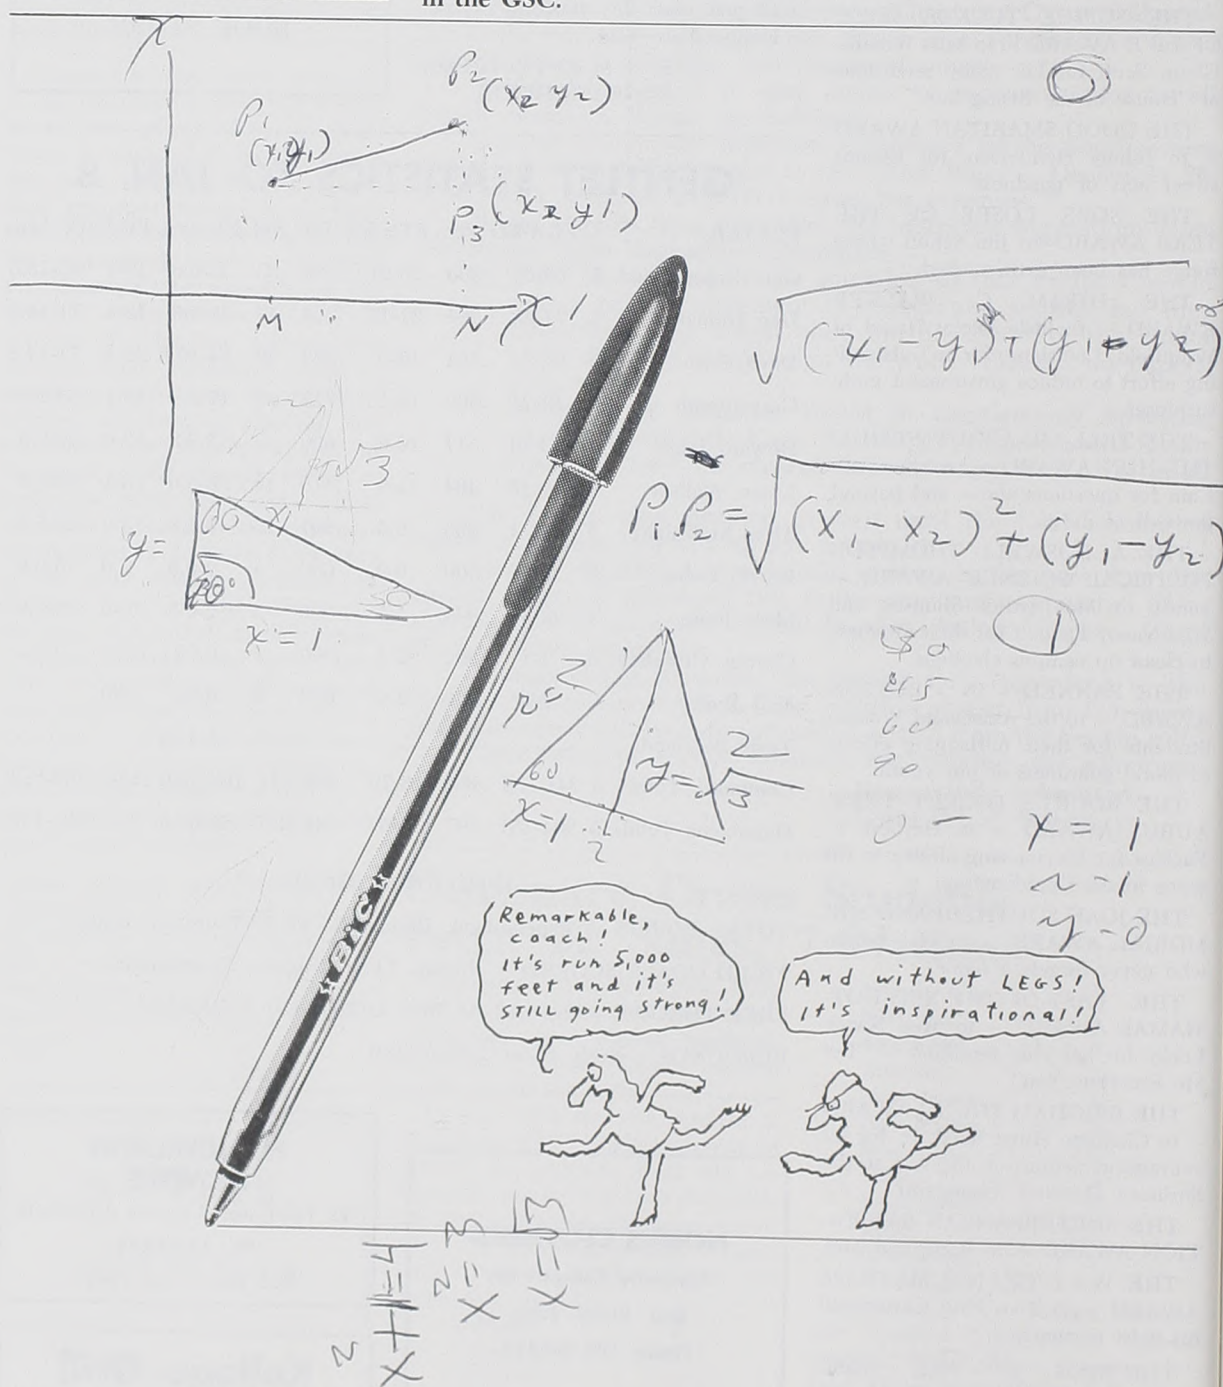 in the GSC.
P2
(x2 y2)
P1
(x1 y1)
P3 (x2 y1)
M
N
x1
√(x1 - y1)² + (y1 - y2)²
P1 P2 = √(x1 - x2)² + (y1 - y2)
1
√3
60
y =
30
x = 1
30
45
60
90
r = 2
60
x = 1
2
y = √3
2
0 - x = 1
r = 1
y = 0
BiC
Remarkable,
coach!
It's run 5,000
feet and it's
STILL going strong!
And without LEGS!
It's inspirational!
x² + 1 = 4
x² = 3
x = √3